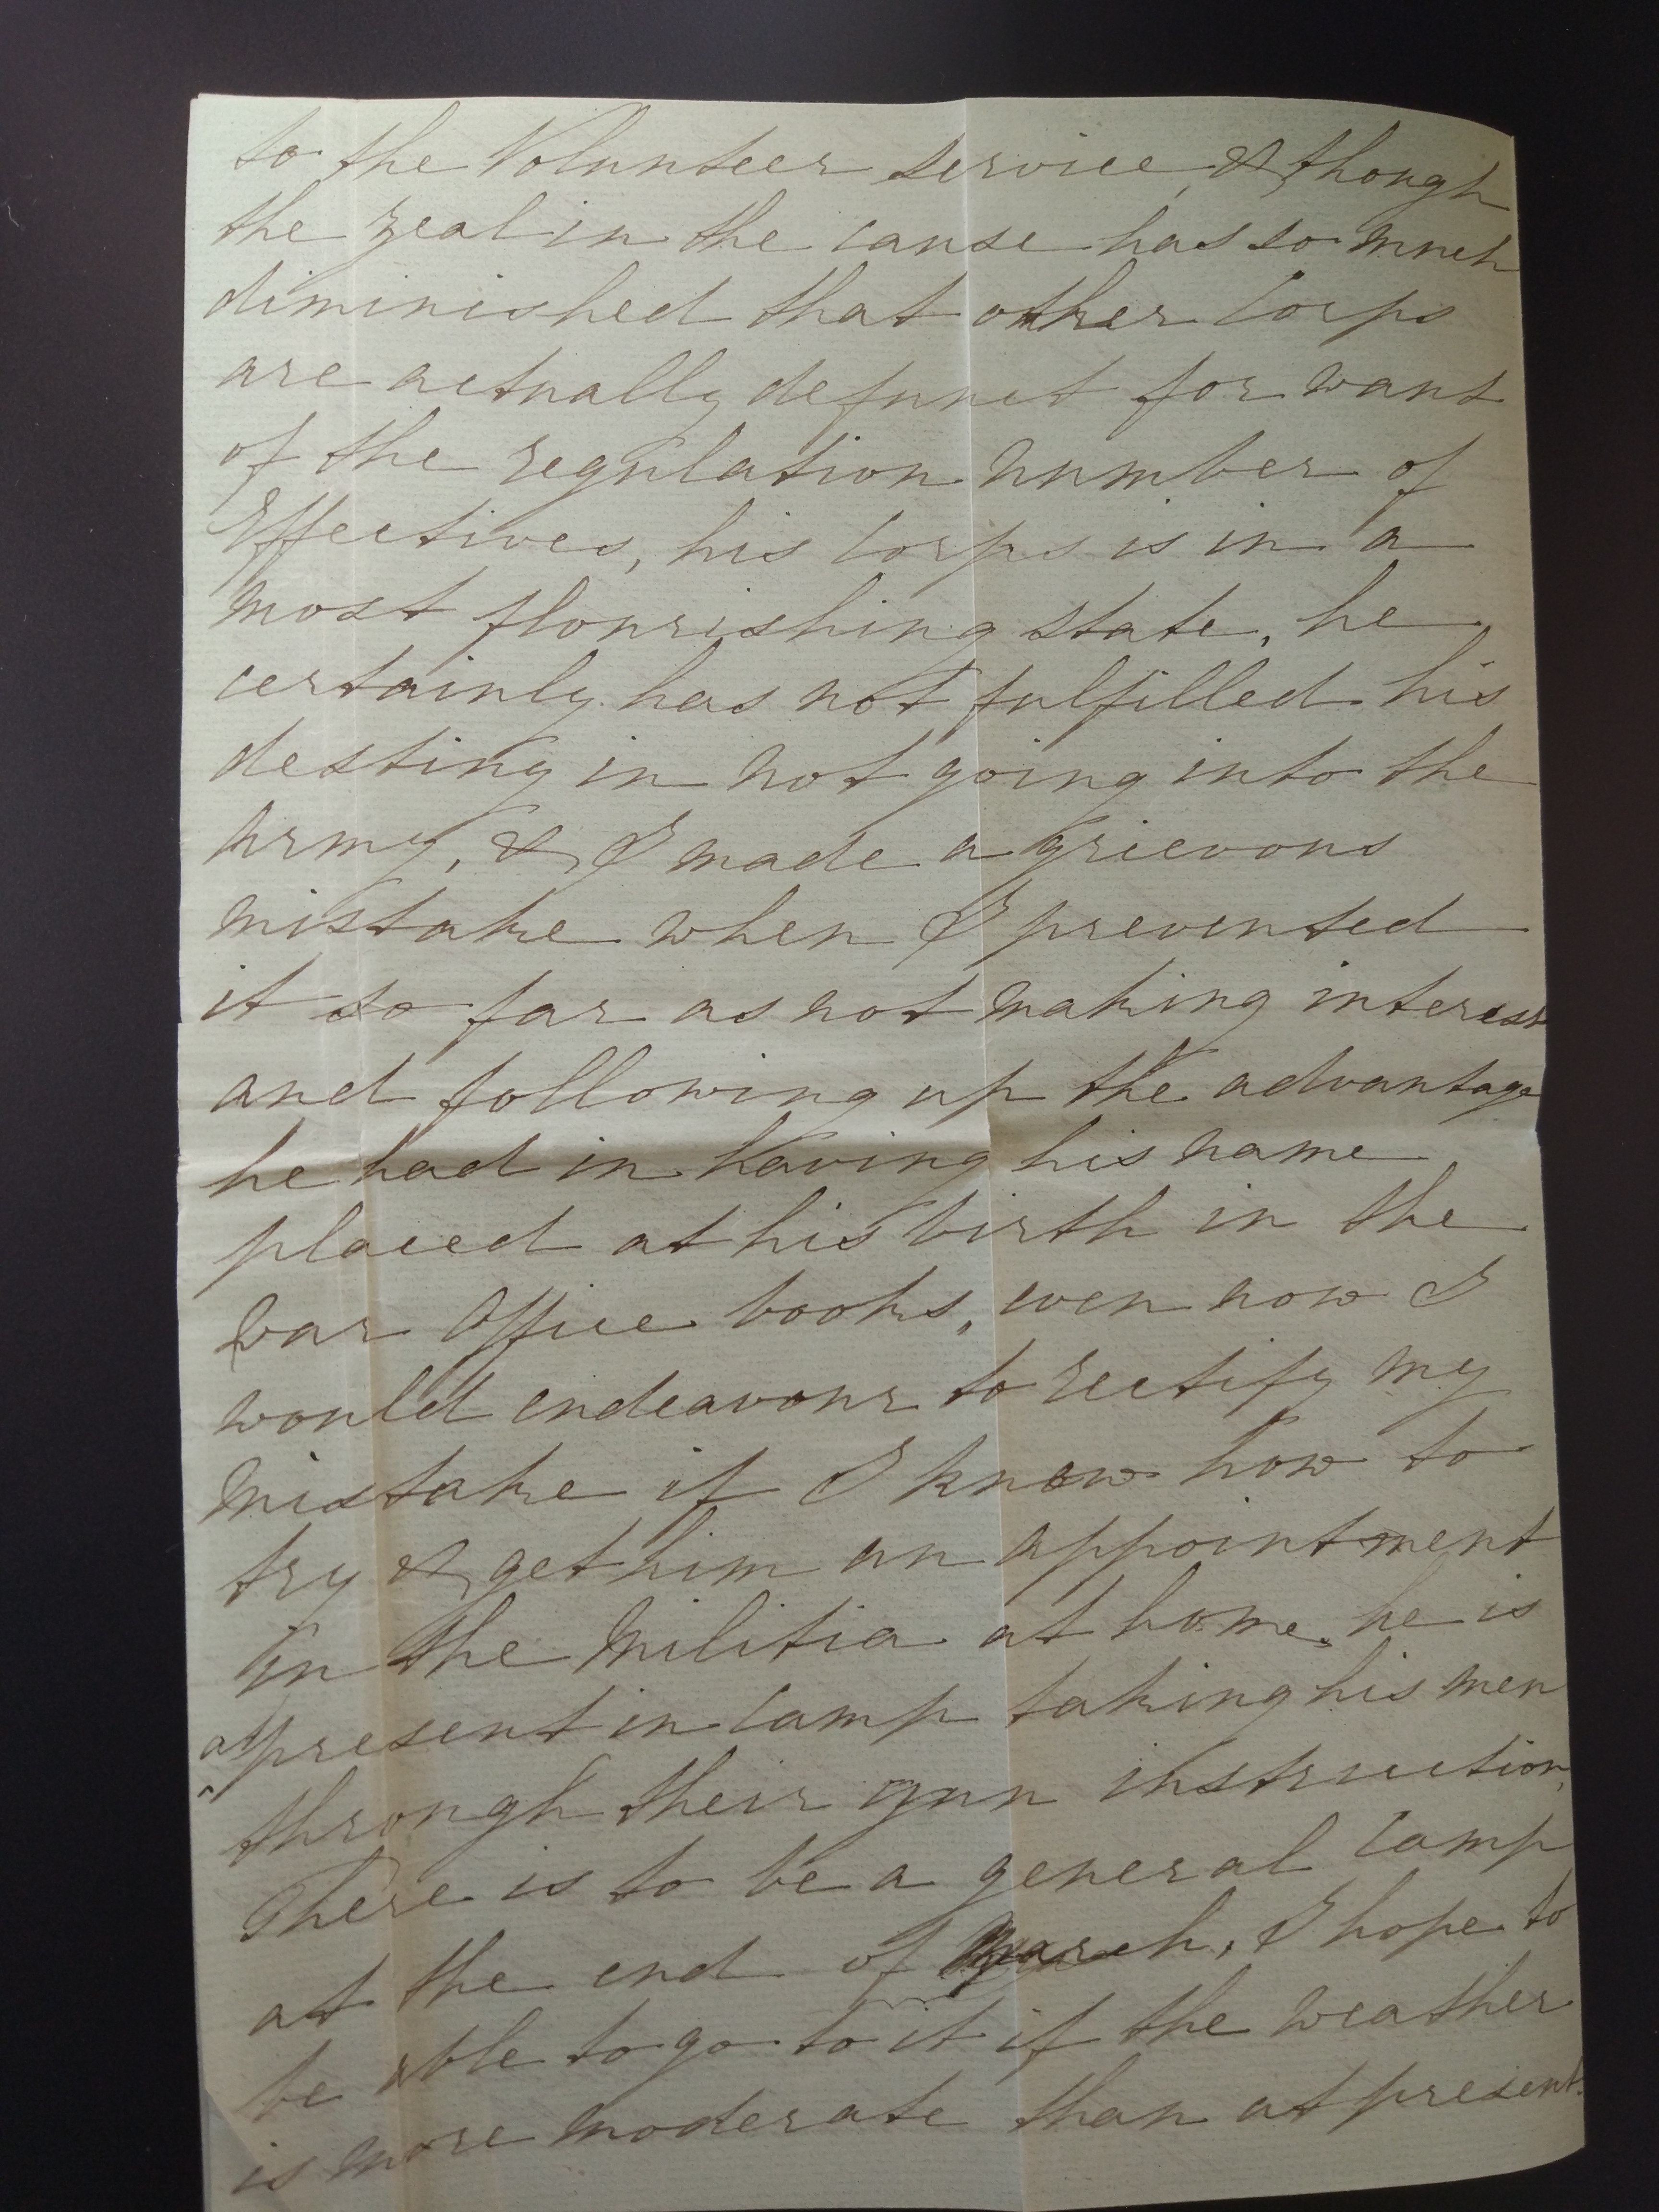 to the Volunteer service, & though
the zeal in the cause has so much
diminished that other Corps
are actually defunct for want
of the regulation number of
Effectives, his Corps is in a
most flourishing state, he
certainly has not fulfilled his
destiny in not going into the
Army, & I made a grievous
mistake when I prevented
it so far as not making interest
and following up the advantage
he had in having his name
placed at his birth in the
War Office books, even now I
would endeavour to rectify my
mistake if I knew how to
try & get him an appointment
in the Militia at home. he is
at present in Camp taking his men
through their gun instruction,
There is to be a general Camp
at the end of March, I hope to
be able to go to it if the weather
is more moderate than at present.